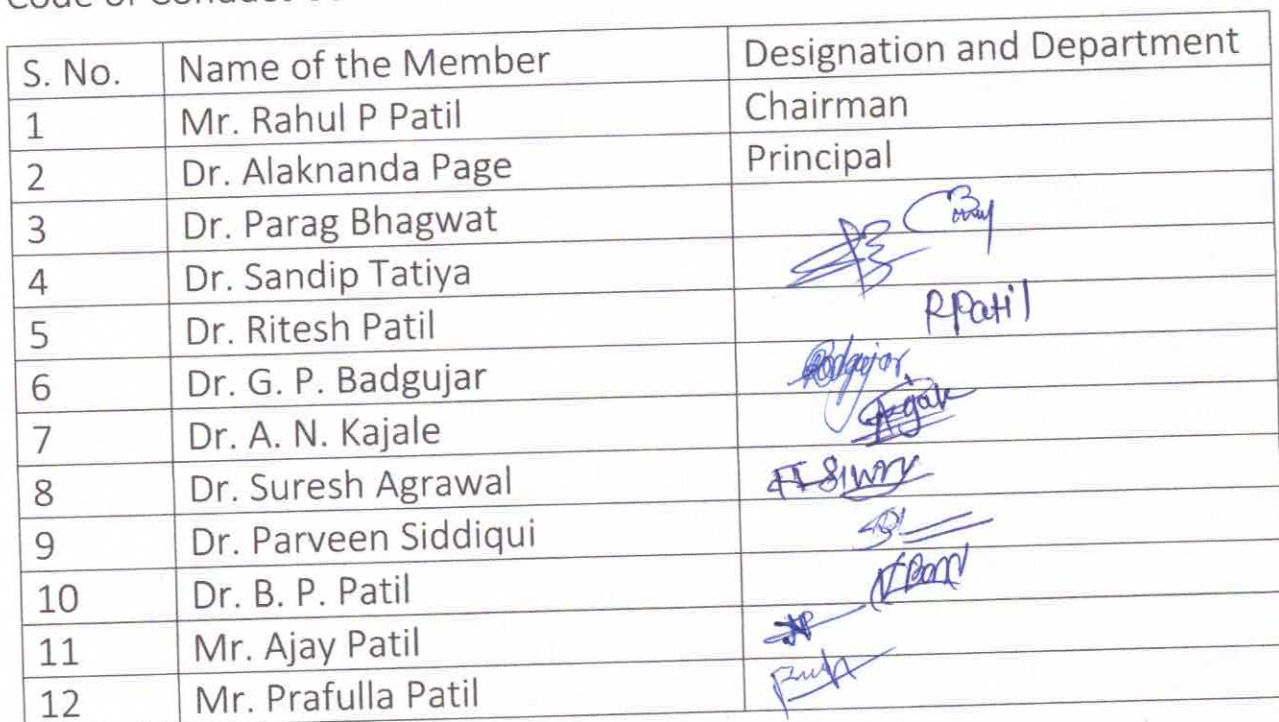 Code of Conduct
S. No. Name of the Member Designation and Department
1 Mr. Rahul P Patil Chairman
2 Dr. Alaknanda Page Principal
3 Dr. Parag Bhagwat
4 Dr. Sandip Tatiya
5 Dr. Ritesh Patil RPatil
6 Dr. G. P. Badgujar Badgujar
7 Dr. A. N. Kajale
8 Dr. Suresh Agrawal
9 Dr. Parveen Siddiqui
10 Dr. B. P. Patil
11 Mr. Ajay Patil
12 Mr. Prafulla Patil